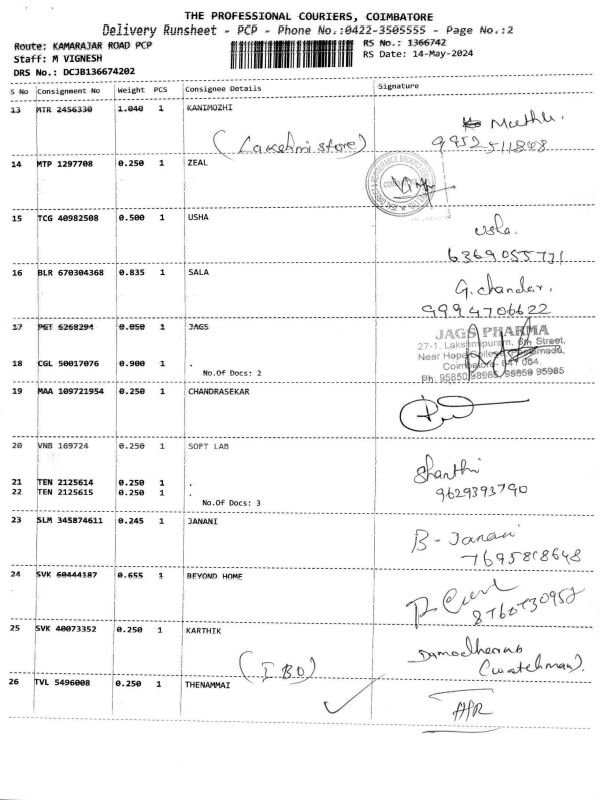 THE PROFESSIONAL COURIERS, COIMBATORE
Delivery Runsheet - PCP - Phone No.:0422-3505555 - Page No.:2
Route: KAMARAJAR ROAD PCP
RS No.: 1366742
Staff: M VIGNESH
RS Date: 14-May-2024
DRS No.: DCJB136674202
S No Consignment No Weight PCS Consignee Details Signature
13 MTR 2456330 1.040 1 KANIMOZHI
Meethu.
(Lakshmi store)
14 MTP 1297708 0.250 1 ZEAL
15 TCG 40982508 0.500 1 USHA
Usha.
6369055771
16 BLR 670304368 0.835 1 SALA
G. chander.
9994706622
17 PGT 6268294 0.050 1 JAGS
JAGS PHARMA
27-1, Lakshmipuram, 6th Street,
Near Hope College, Peelamedu,
Coimbatore - 641 004.
Ph: 95850 98985, 95859 95985
18 CGL 50017076 0.900 1 .
No.Of Docs: 2
19 MAA 109721954 0.250 1 CHANDRASEKAR
20 VNB 169724 0.250 1 SOFT LAB
Shanthi
9629393790
21 TEN 2125614 0.250 1 .
22 TEN 2125615 0.250 1 .
No.Of Docs: 3
23 SLM 345874611 0.245 1 JANANI
B - Janani
7695818648
24 SVK 60444187 0.655 1 BEYOND HOME
25 SVK 40073352 0.250 1 KARTHIK
(watchman).
(IBO)
26 TVL 5496008 0.250 1 THENAMMAI